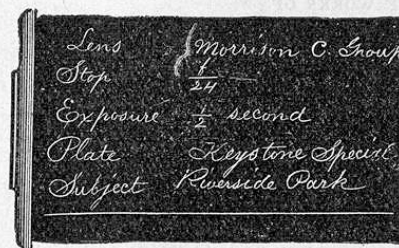 Lens Morrison C. Group
Stop f/24 —
Exposure ½ second
Plate Keystone Special
Subject Riverside Park